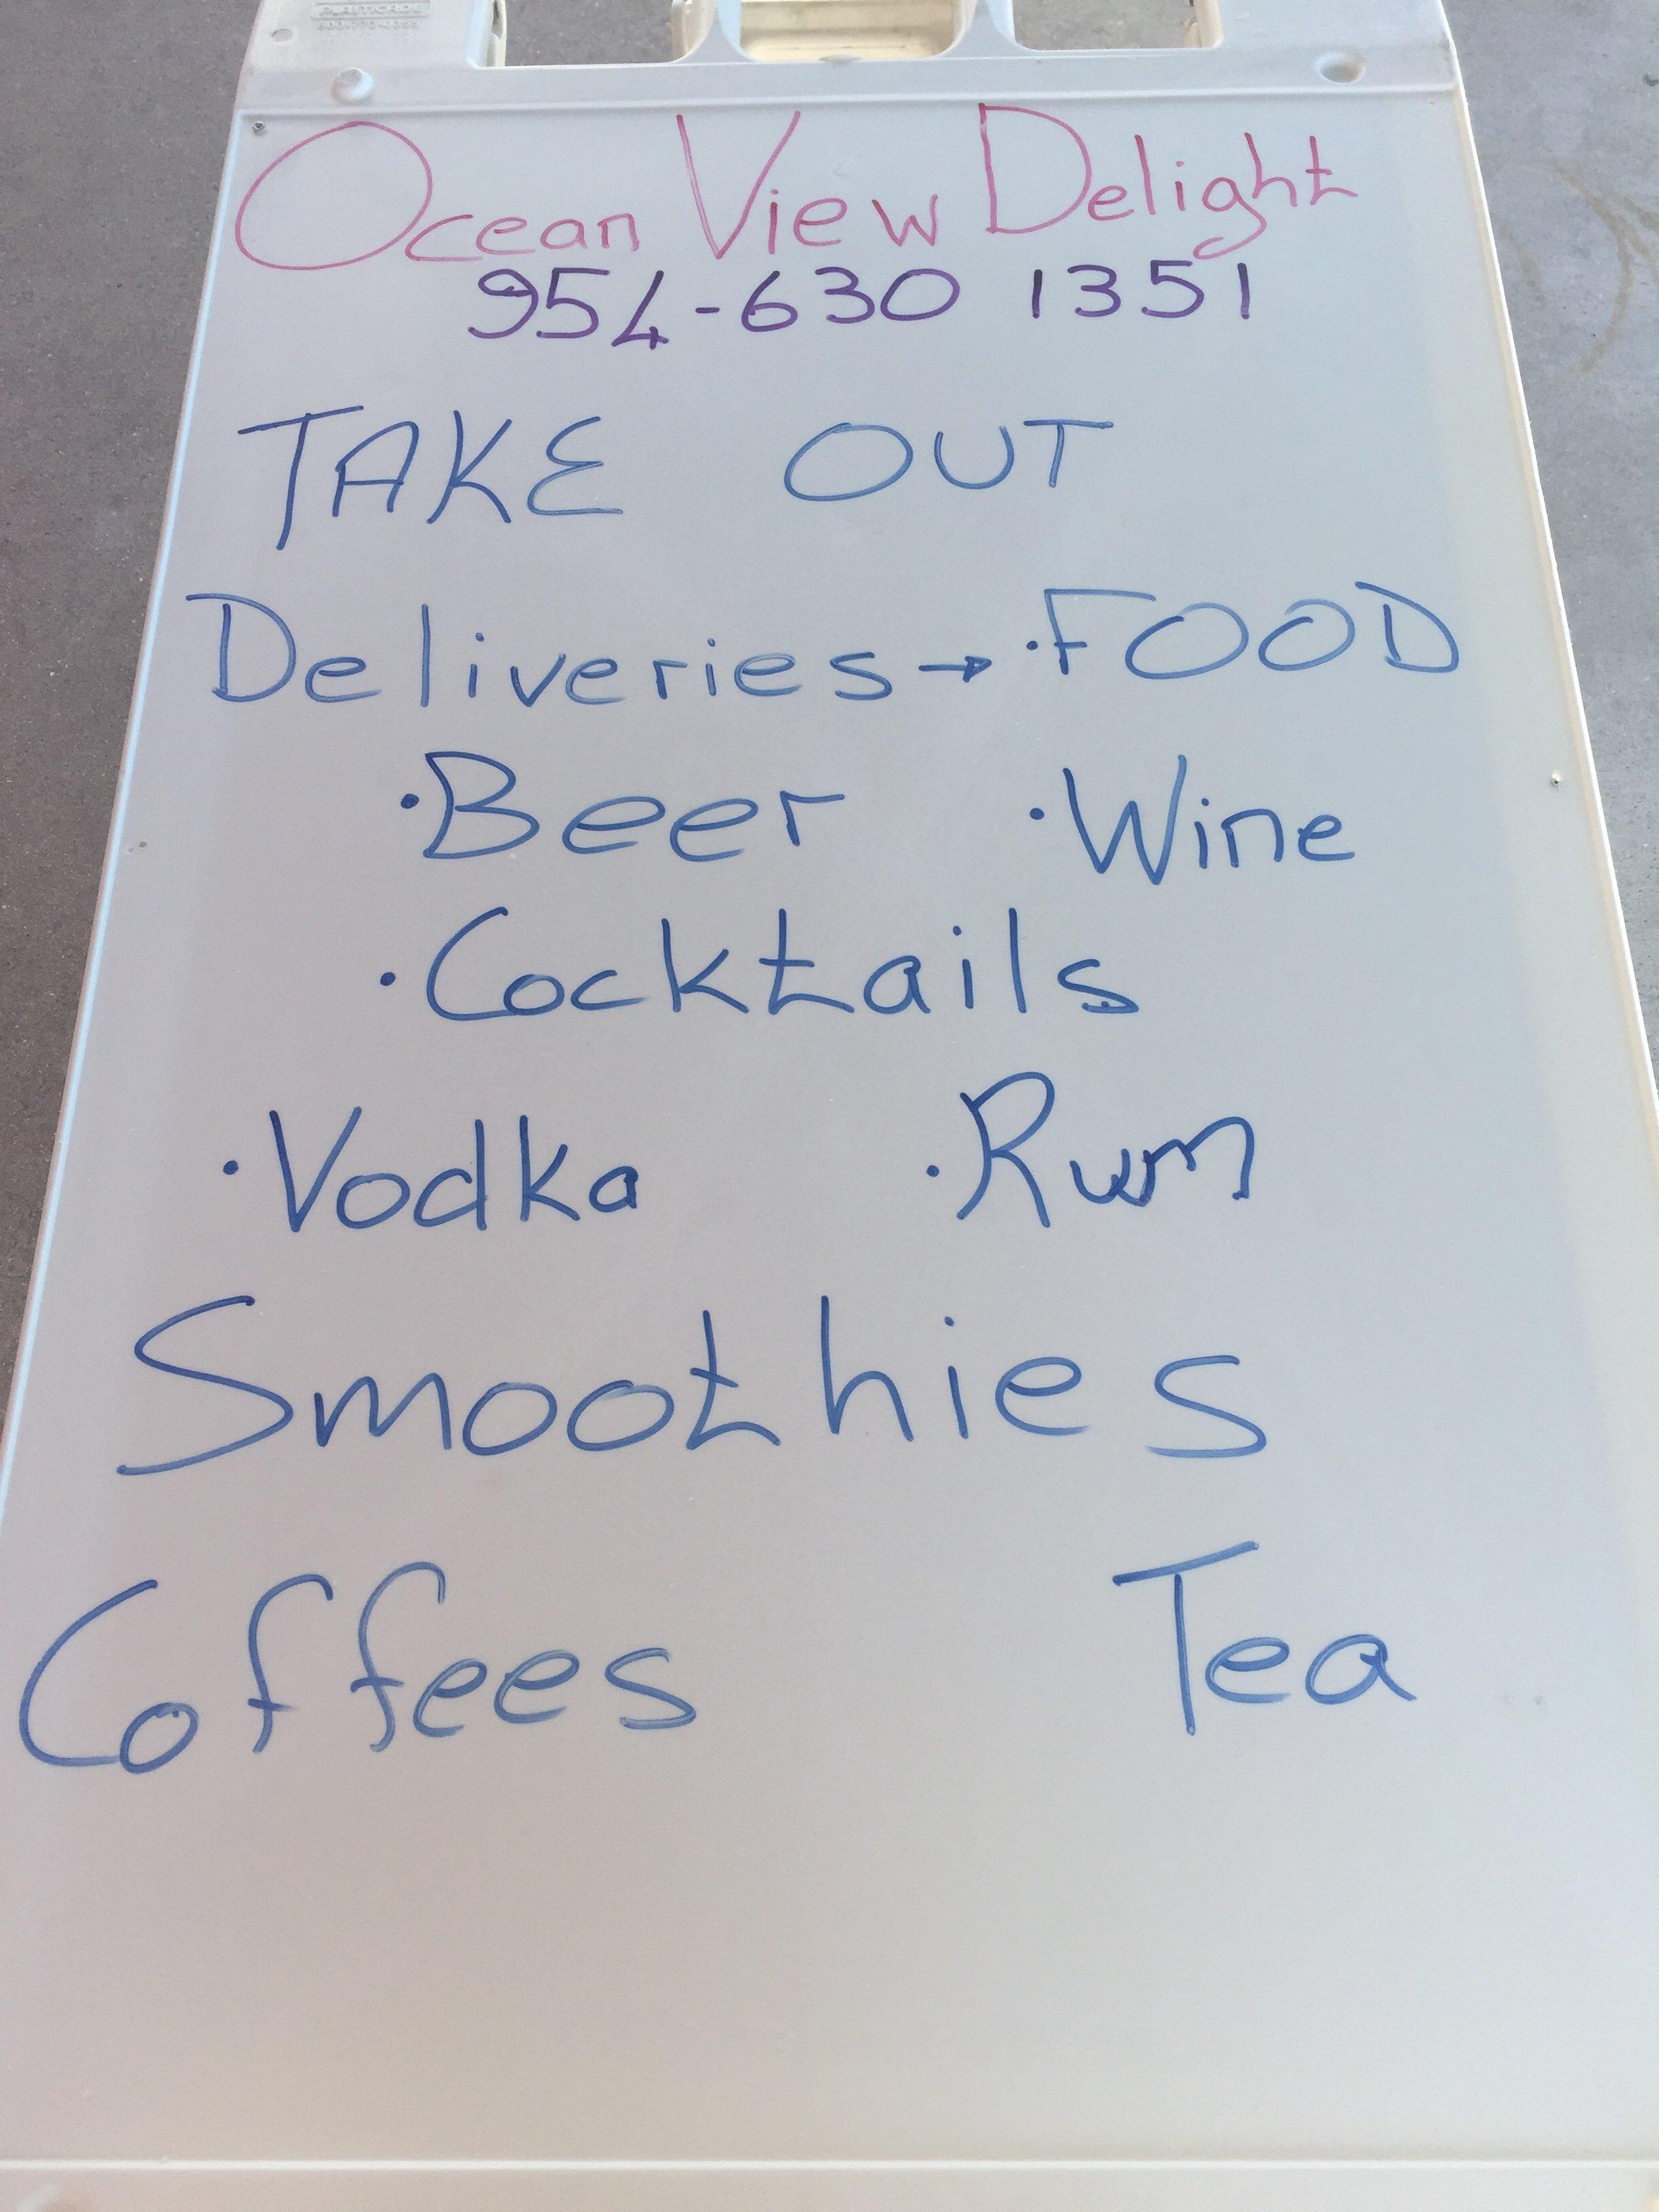 PLASTICADE
Ocean View Delight
954-630 1351
TAKE OUT
Deliveries → • FOOD
• Beer • Wine
• Cocktails
• Vodka • Rum
Smoothies
Coffees Tea